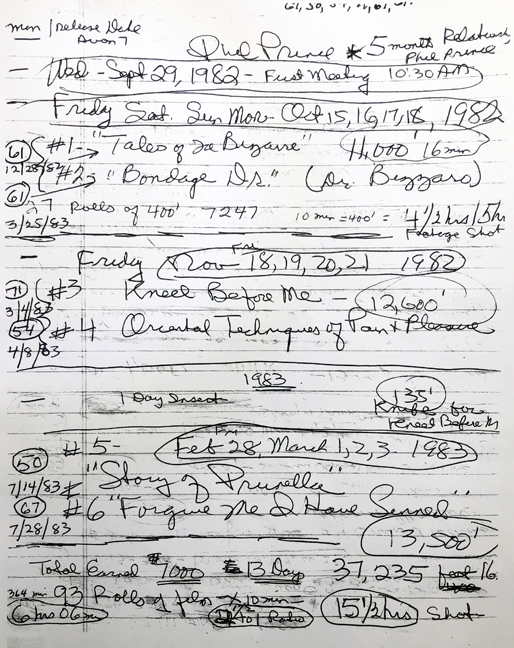 min / release Date
Avon 7
Phil Prince * 5 month Relationship
Phil Prince
— Wed - Sept 29, 1982 - First Meeting 10:30 AM
Friday Sat. Sun Mon - Oct 15, 16, 17, 18, 1982
61 #1 - "Tales of the Bizarre" 11,000' 16 mm
12/28/82
#2 - "Bondage Dr." (Dr. Bizzaro)
61
3/25/83
Rolls of 400' 7247 10 min = 400' = 4 1/2 hrs / 5 hr
Footage Shot
Fri
— Friday Nov 18, 19, 20, 21 1982
71 #3 Kneel Before Me - 12,600'
3/4/83
54 #4 Oriental Techniques of Pain & Pleasure
4/8/83
1983
— 1 Day Insert 135'
Knife for
Kneel Before Me
Fri
50 #5 - Feb 28, March 1, 2, 3 - 1983
7/14/83 "Story of Prunella"
67 #6 "Forgive Me I Have Sinned"
7/28/83
13,500'
Total Earned $1000 13 Days 37,235 feet 16
364 min 93 Rolls of film x 10 min
6 hrs 06 m to 1 Ratio 15 1/2 hrs Shot